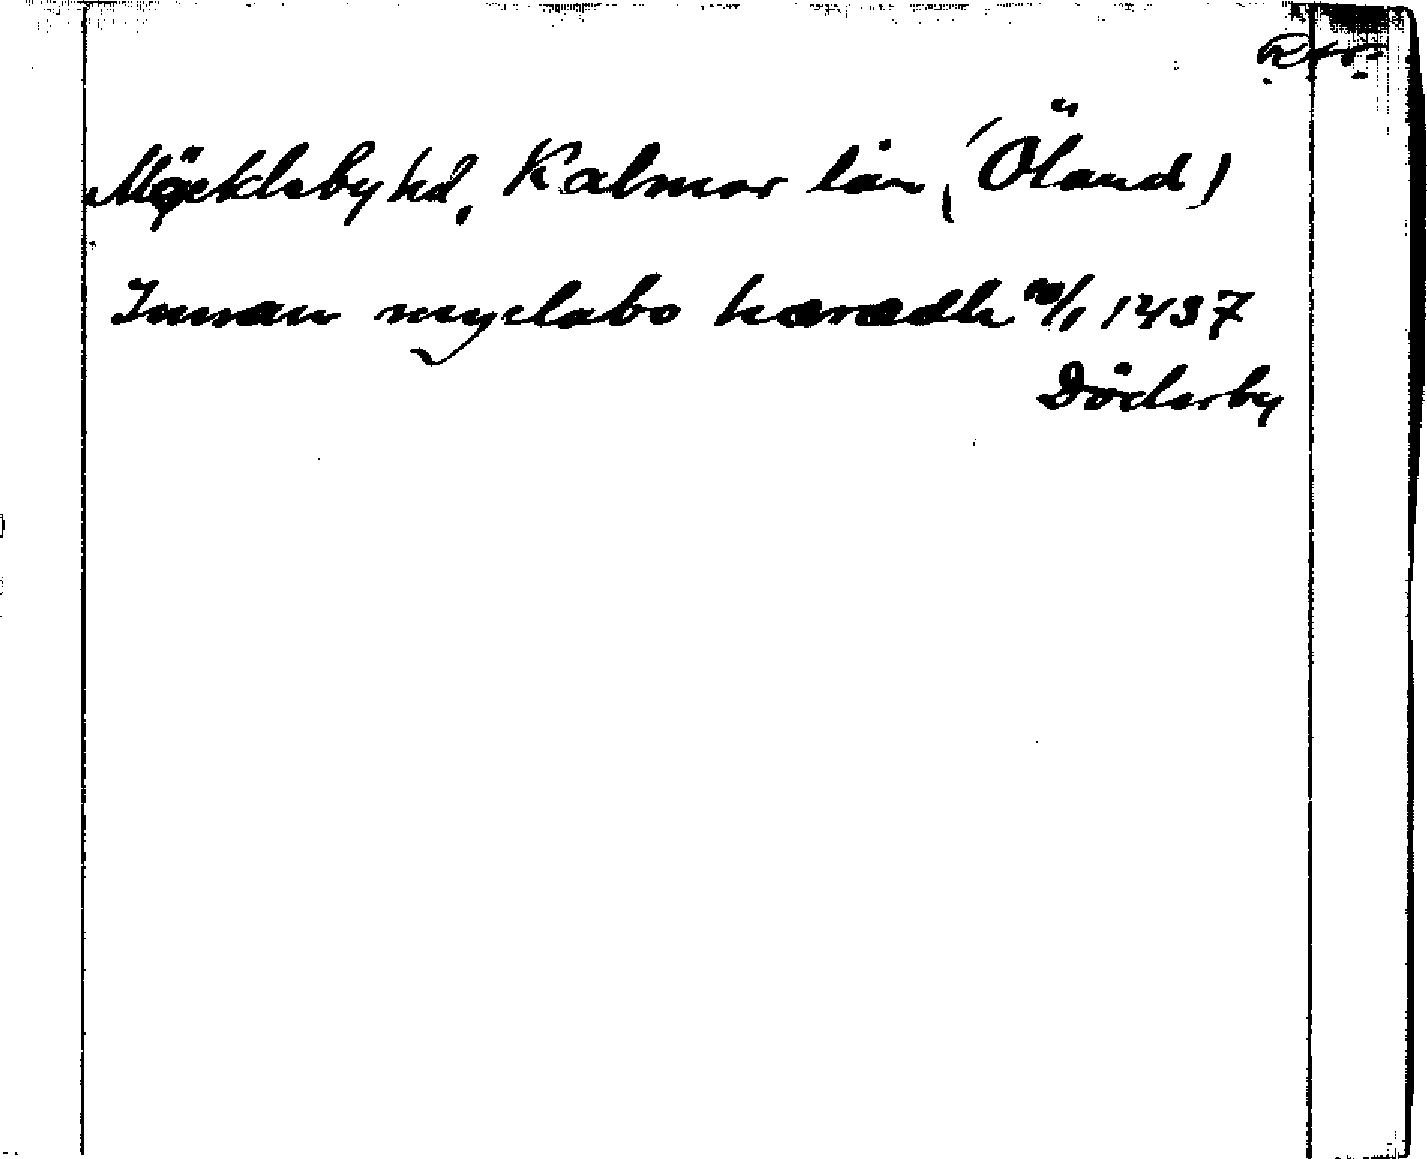 Möckleby hd, Kalmar län, (Öland)
Innan myclabo hæradh 1437
Döderby